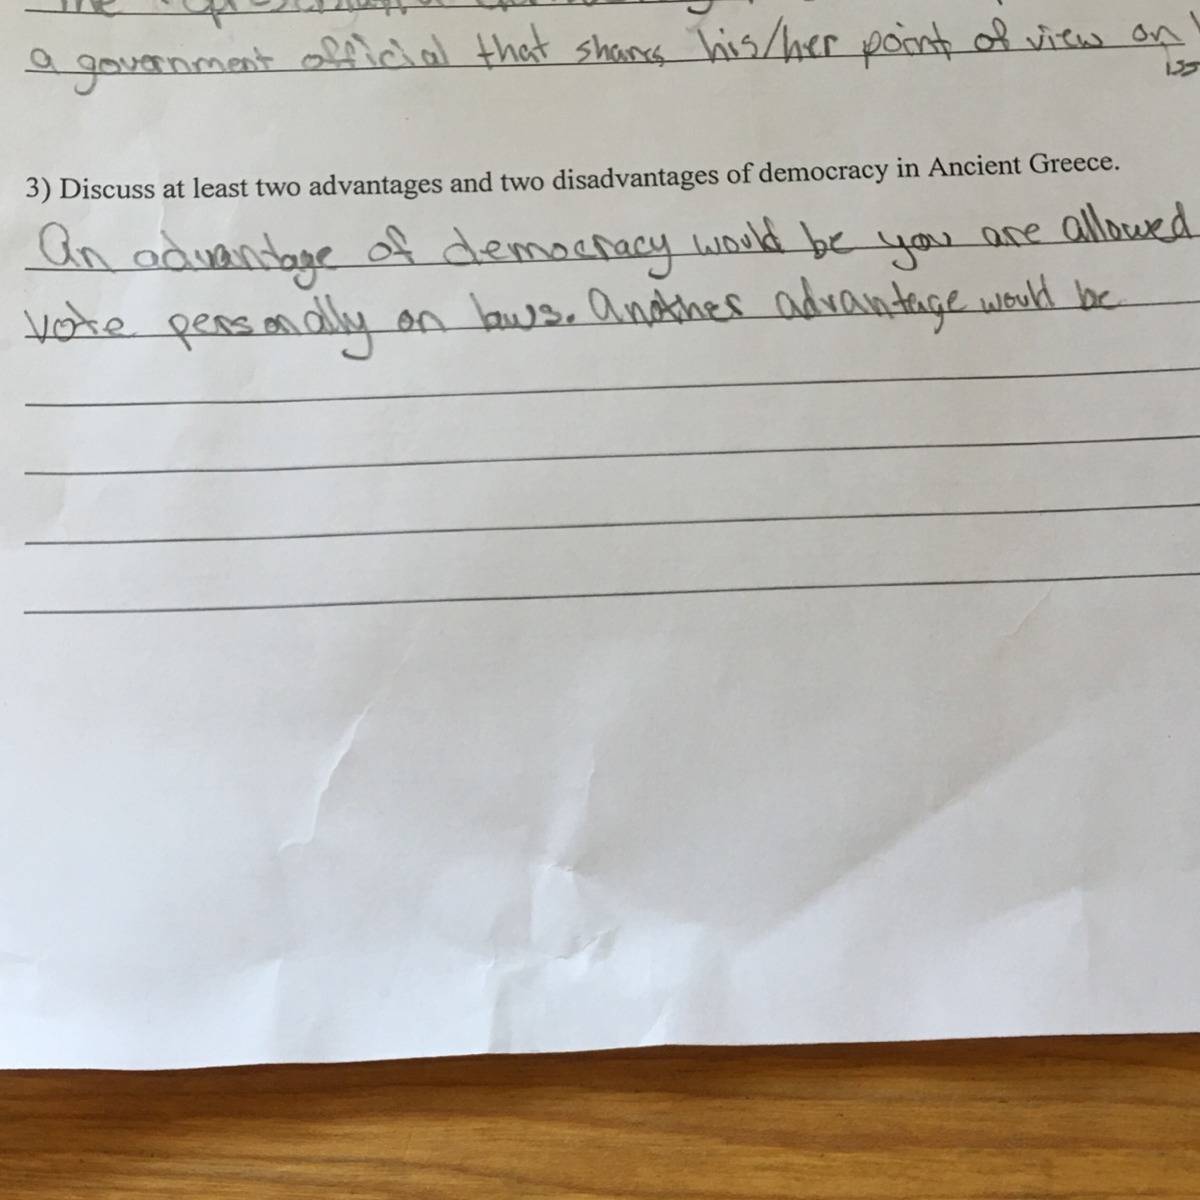 The
a government official that shares his/her point of view on
iss
3) Discuss at least two advantages and two disadvantages of democracy in Ancient Greece.
An advantage of democracy would be you are allowed
vote personally on laws. Another advantage would be